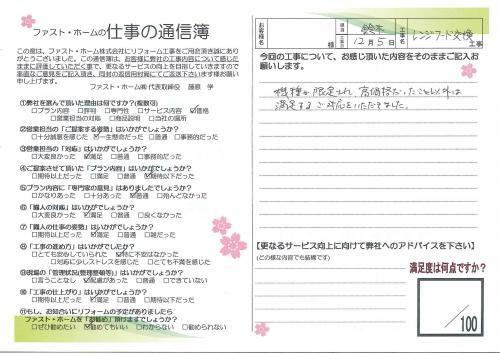 ファスト・ホームの仕事の通信簿
この度は、ファスト・ホーム株式会社にリフォーム工事をご用命頂き誠にあり
がとうございました。この通信簿は、お客様に弊社の工事内容について感じた
ままに評価していただく事で、更なるサービスの向上を目指していきますので
率直なご意見をご記入頂き、同封の返信用封筒にてご返送下さいます様お願い
申し上げます。
ファスト・ホーム㈱ 代表取締役 藤原 学
①弊社を選んで頂いた理由は何ですか？（複数可）
□プラン内容 □評判 □専門性 □サービス内容 ☑価格
□営業担当の対応 □商品説明 □当社の場所
②営業担当の「ご提案する姿勢」はいかがでしょうか？
□十分誠意を感じた ☑一生懸命だった □普通 □事務的だった
③営業担当の「対応」はいかがでしょうか？
□大変良かった ☑満足 □普通 □事務的だった
④ご提案させて頂いた「プラン内容」はいかがでしょうか？
□期待以上だった □満足 □普通 ☑期待以下だった
⑤プラン内容に「専門家の意見」はありましたでしょうか？
□かなりあった □十分あった ☑普通 □殆んどなかった
⑥「職人の対応」はいかがでしょうか？
□大変良かった ☑満足 □普通 □良くなかった
⑦「職人の仕事の姿勢」はいかがでしょうか？
□期待以上だった ☑満足 □普通 □雑だった
⑧「工事の進め方」はいかがでしたか？
□とても安心していられた ☑特に不安はなかった
□対応に少しストレスを感じた □とても不満を感じた
⑨現場の「管理状況（整理整頓等）」はいかがでしょうか？
□言うことなし ☑配慮があった □普通 □できていない
⑩「工事の仕上がり」はいかがでしょうか？
□期待以上だった ☑満足 □普通 □期待以下だった
⑪もし、お知合いにリフォームの予定がありましたら
ファスト・ホームを「お勧め」頂けますでしょうか？
□ぜひ勧めたい ☑勧めてもいい □わからない □勧められない
お客様名 様 担当 鈴木 工事名 レンジフード交換 工事
12月5日
今回の工事について、お感じ頂いた内容をそのままご記入お
願いします。
機種が限定され、高価格だったこと以外は
満足するご対応をいただきました。
【更なるサービス向上に向けて弊社へのアドバイスを下さい】
（どの様な内容でも結構です）
満足度は何点ですか？
／100